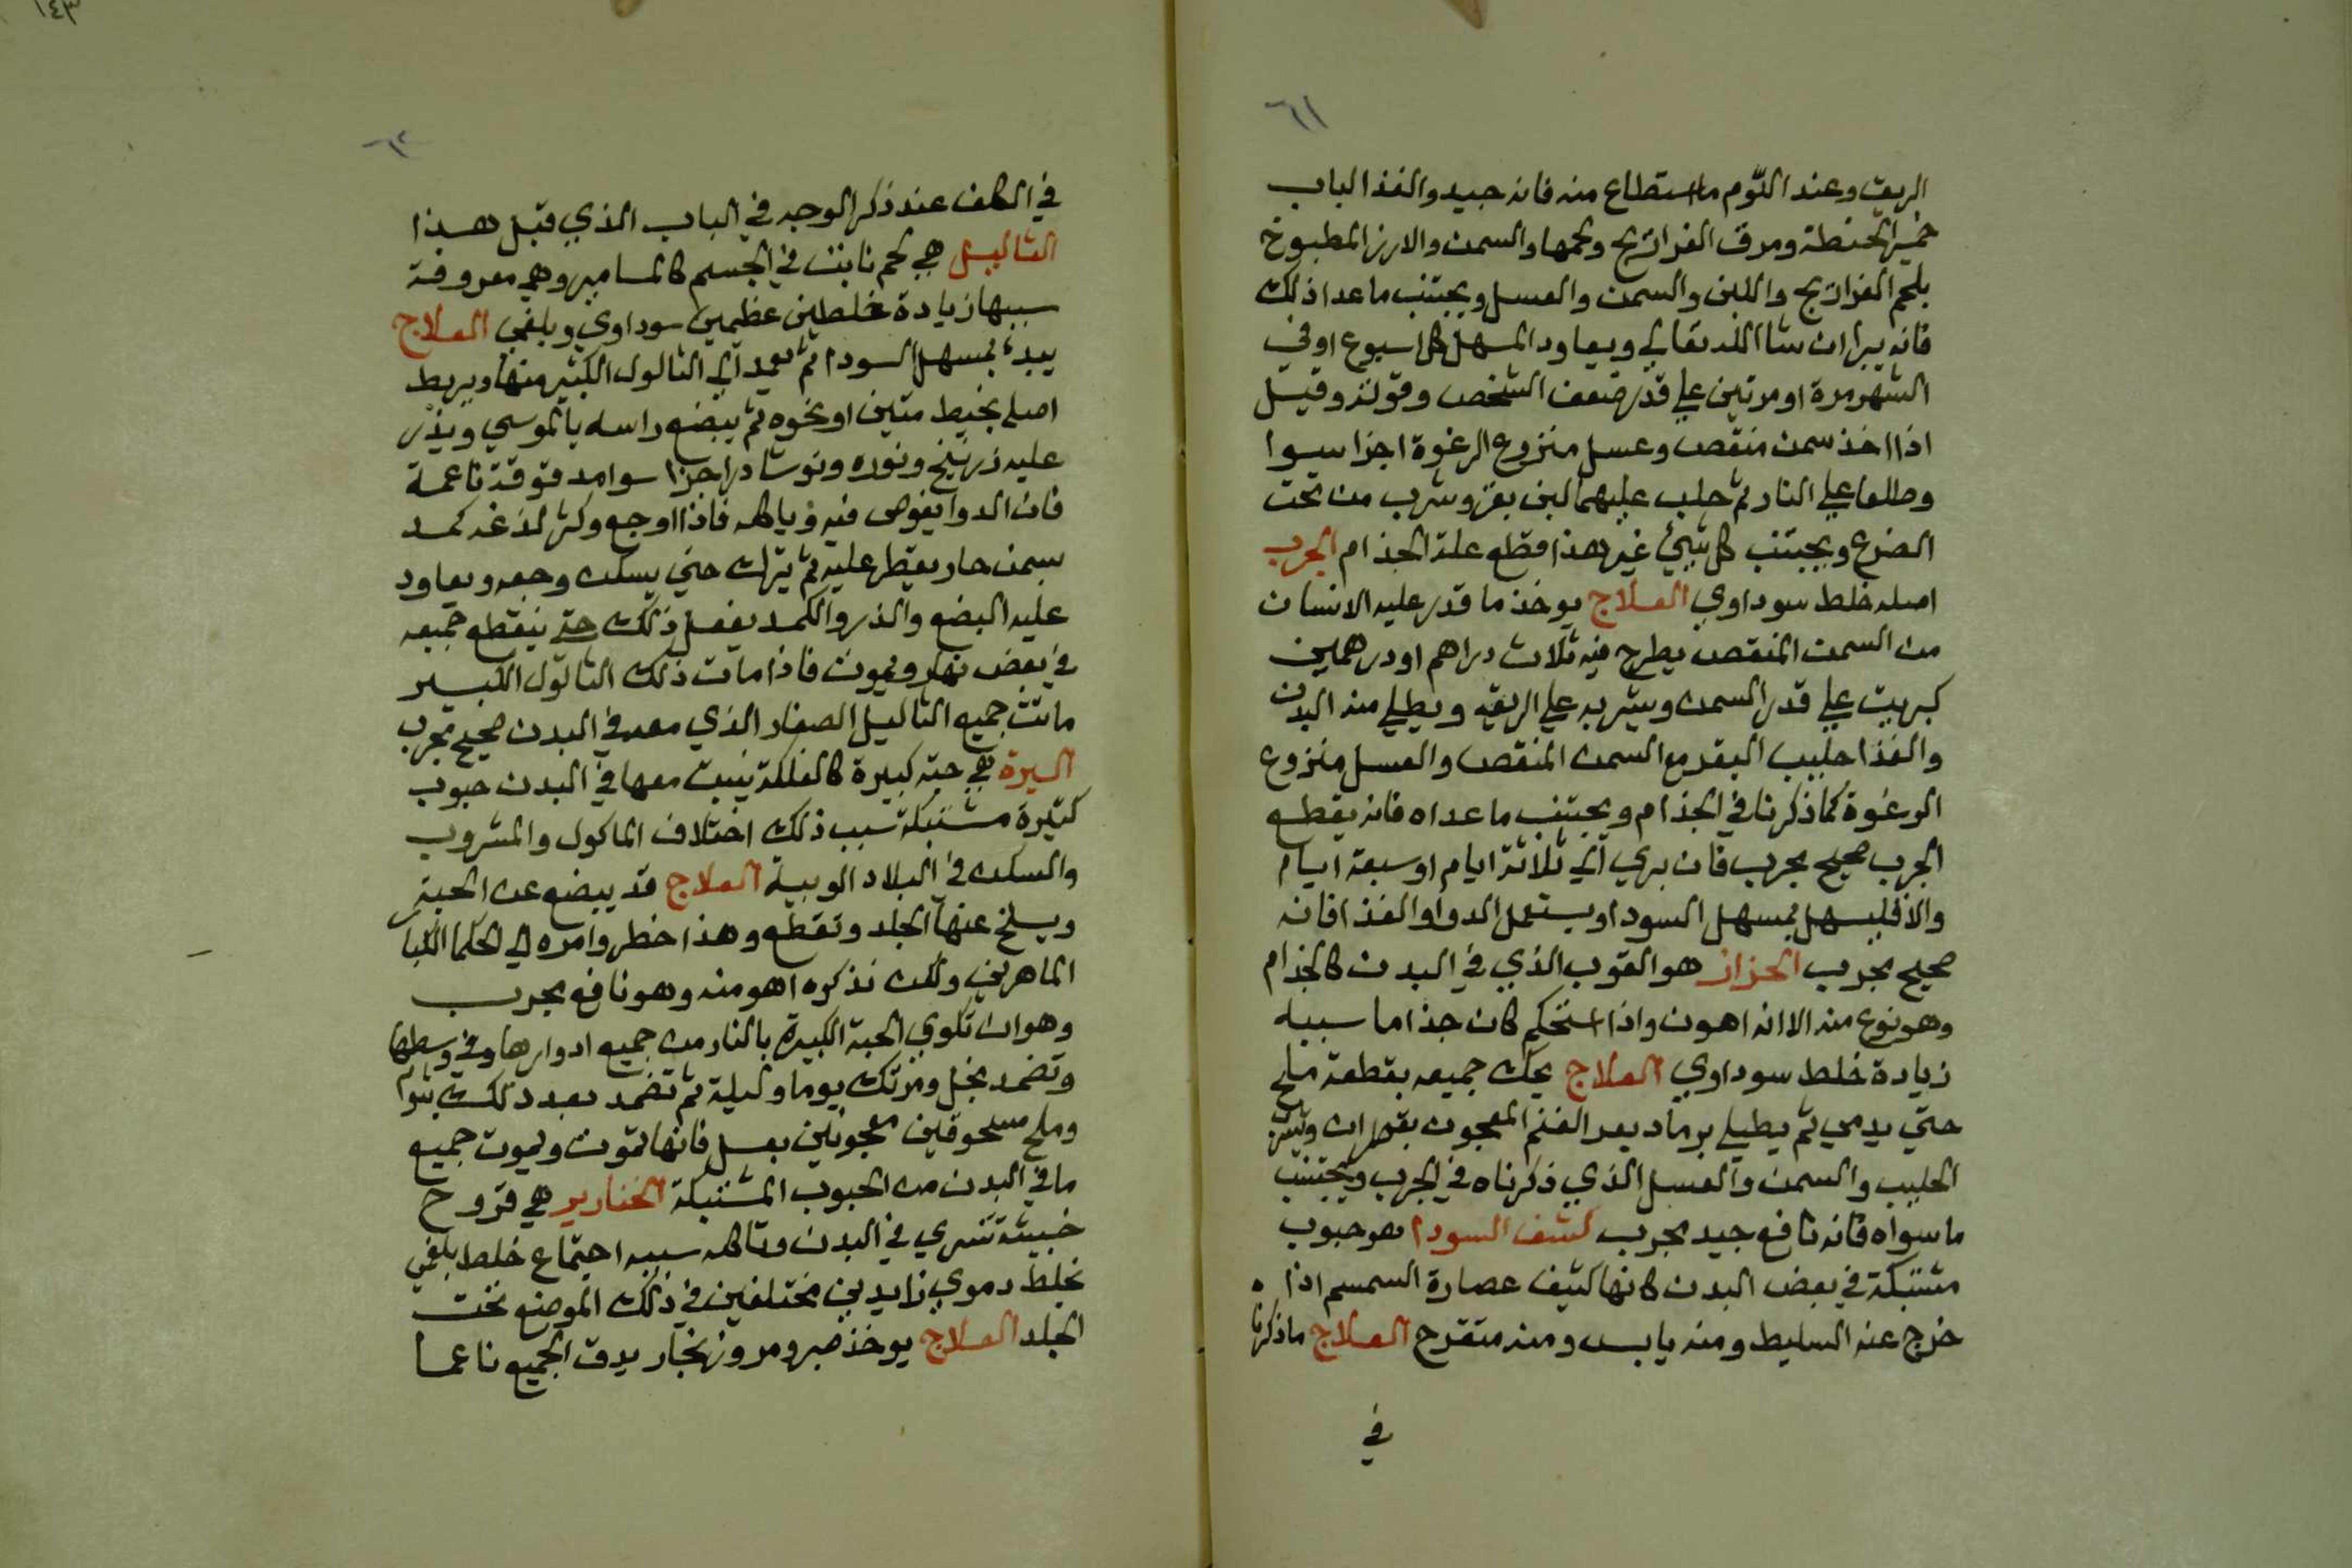 ٦١
الريق وعند النوم ما استطاع منه فانه جيد والغذا لباب
خمير الحنطة ومرق الفراريج ولحمها والسمن والارز المطبوخ
بلحم الفراريج واللبن والسمن والعسل ويجتنب ماعدا ذلك
فانه يبرا ان شا الله تعالي ويعاود المسهل كل اسبوع او في
الشهر مرة او مرتين علي قدر ضعف الشخص وقوته وقيل
اذا اخذ سمن منقص وعسل منزوع الرغوة اجزا سوا
وطلعا علي النار ثم حلب عليهما لبن بقر وشرب من تحت
الضرع ويجتنب كل شيئ غير هذا قطع علة الجذام الجرب
اصله خلط سوداوي العلاج يوخذ ما قدر عليه الانسان
من السمن المنقص يطرح فيه ثلاث دراهم او درهمين
كبريت علي قدر السمن ويشربه علي الريق ويطلي منه البدن
والغذا حليب البقر مع السمن المنقص والعسل منزوع
الرغوة كما ذكرنا في الجذام ويجتنب ما عداه فانه يقطع
الجرب صحيح مجرب فان بري الي ثلاثة ايام او سبعة ايام
والا فليسهل بمسهل السودا ويستعمل الدوا والغذا فانه
صحيح مجرب الحزاز هو القوب الذي في البدن كالجذام
وهو نوع منه الا انه اهون واذا استحكم كان جذاما سببه
زيادة خلط سوداوي العلاج يحك جميعه بقطعة ملح
حتي يدمي ثم يطلي برماد بعر الغنم المعجون بقطران ويشرب
الحليب والسمن والعسل الذي ذكرناه في الجرب ويجتنب
ما سواه فانه نافع جيد مجرب كشف السودا هو حبوب
مشتبكة في بعض البدن كانها كثيف عصارة السمسم اذا ه
خرج عنه السليط ومنه يابس ومنه متقرح العلاج ما ذكرنا
في
١٤٣
٦٢
في الكلف عند ذكر الوجه في الباب الذي قبل هذا
الثاليل هي لحم نابت في الجسم كالمسامير وهي معروفة
سببها زيادة خلطين عظيمين سوداوي وبلغمي العلاج
يبدء بمسهل السودا ثم تعمد الي الثالول الكبير منها ويربط
اصله بخيط متين او نحوه ثم يبضع راسه بالموسي ويذر
عليه زرنيخ ونوره ونوشادر اجزا سوا مدقوقة ناعمة
فان الدوا يغوص فيه وياكله فاذا اوجع وكثر لذغه كمد
بسمن حار يقطر عليه ثم يترك حتي يسكن وجعه ويعاود
عليه البضع والذر والكمد يفعل ذلك حتي ينقطع جميعه
في بعض نهار ويموت فاذا مات ذلك الثالول الكبير
ماتت جميع الثاليل الصغار الذي معه في البدن صحيح مجرب
السرة هي حبة كبيرة كالفلكة ينبت معها في البدن حبوب
كثيرة مشتبكة سبب ذلك اختلاف الماكول والمشروب
والسكن في البلاد الوبية العلاج قد يبضع عن الحبة
ويسلخ عنها الجلد وتقطع وهذا خطر وامره الي الحكما الكبار
الماهرين ولكن نذكره اهو منه وهو نافع مجرب
وهو ان تكوي الحبة الكبيرة بالنار من جميع ادوارها وفي وسطها
وتضمد بخل ومرتك يوما وليلة ثم تضمد بعد ذلك بثوم
وملح مسحوقين معجونين بعسل فانها تموت ويموت جميع
ما في البدن من الحبوب المشتبكة الخنازير هي قروح
خبيثة تسري في البدن وتاكله سببه اجتماع خلط بلغمي
بخلط دموي زايدين مختلفين في ذلك الموضع تحت
الجلد العلاج يوخذ صبر ومر وزنجار يدق الجميع ناعما